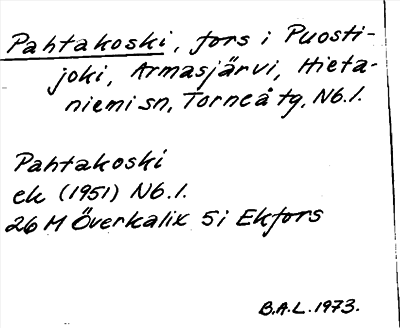 Pahtakoski, fors i Puosti-
joki, Armasjärvi, Hieta-
niemi sn, Torneå tg, Nb.l.
Pahtakoski
ek (1951) Nb.l.
26 M Överkalix 5i Ekfors
B.A.L. 1973.